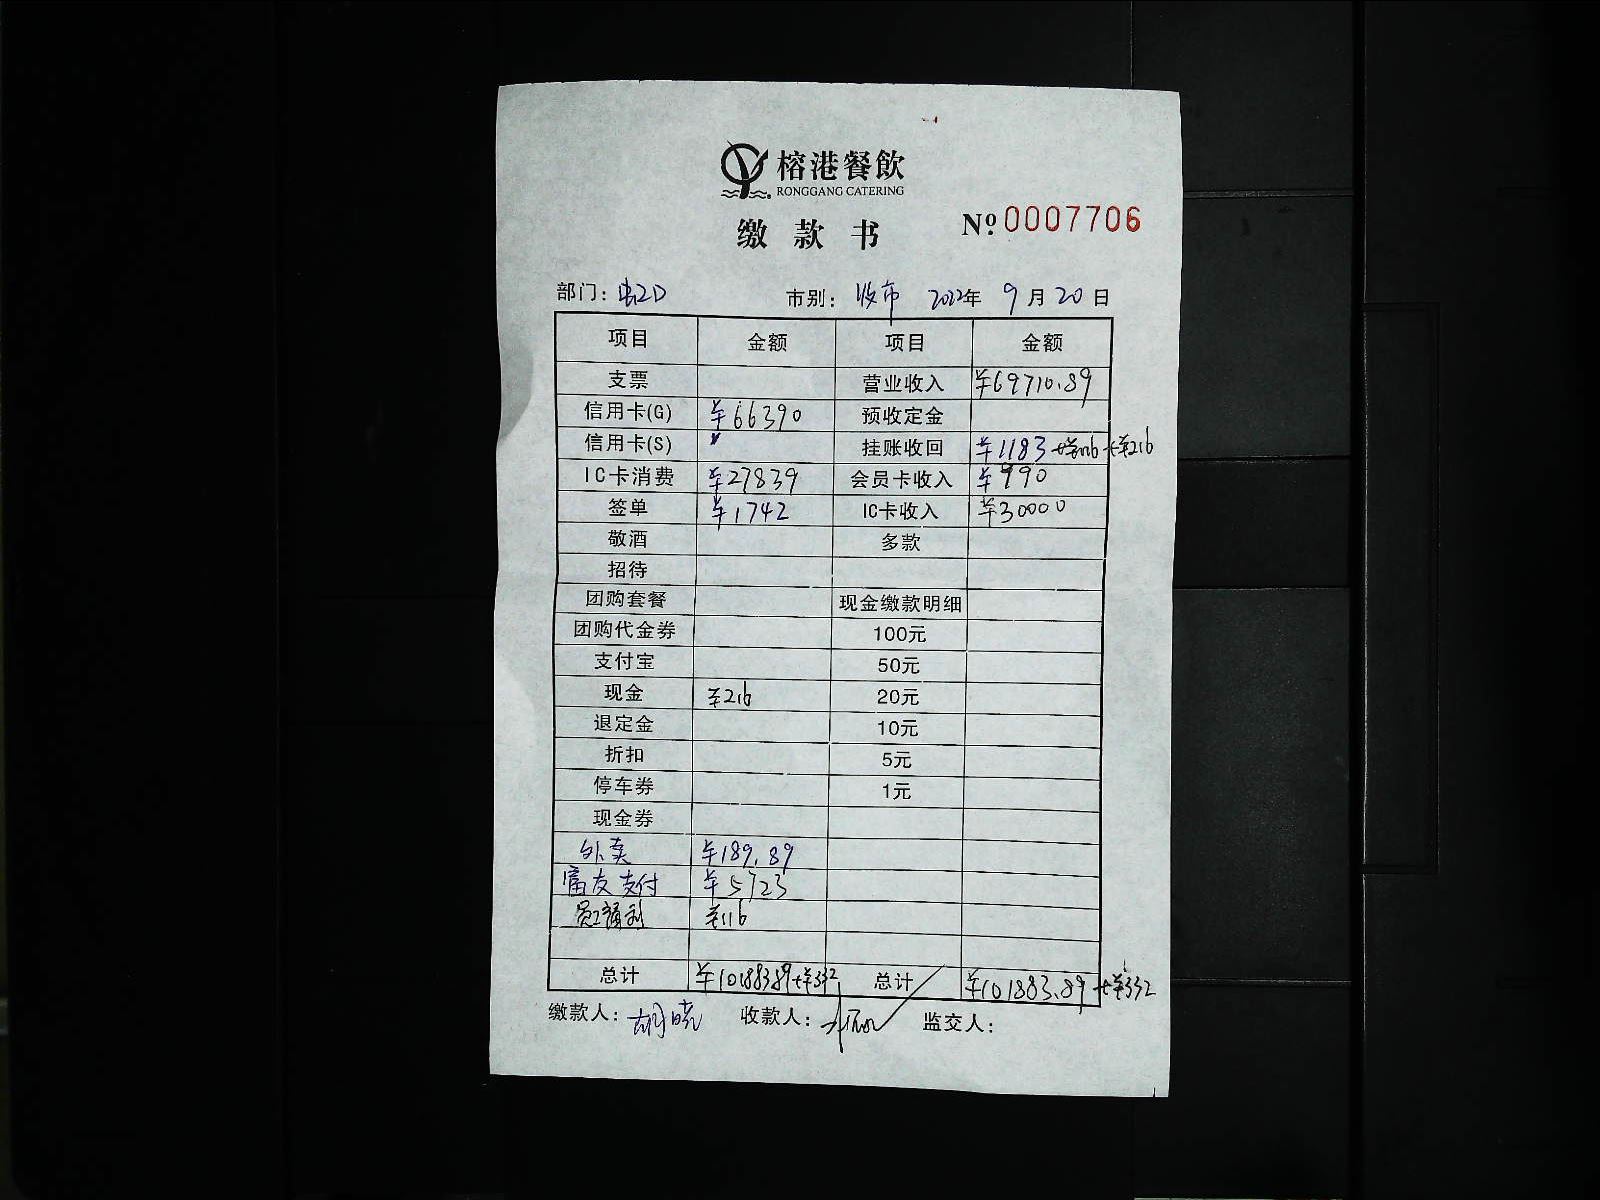 榕港餐飲
RONGGANG CATERING
缴款书 Nº 0007706
部门: 市别: 收市 2022年 9月 20日
项目 金额 项目 金额
支票 营业收入 ¥69710.89
信用卡(G) ¥66390 预收定金
信用卡(S) 挂账收回 ¥1183 +¥116 +¥216
IC卡消费 ¥27839 会员卡收入 ¥990
签单 ¥1742 IC卡收入 ¥30000
敬酒 多款
招待
团购套餐 现金缴款明细
团购代金券 100元
支付宝 50元
现金 ¥216 20元
退定金 10元
折扣 5元
停车券 1元
现金券
外卖 ¥189.89
富友支付 ¥5723
员工福利 ¥116
总计 ¥101883.89+¥332 总计 ¥101883.89+¥332
缴款人: 胡晓 收款人: 监交人: